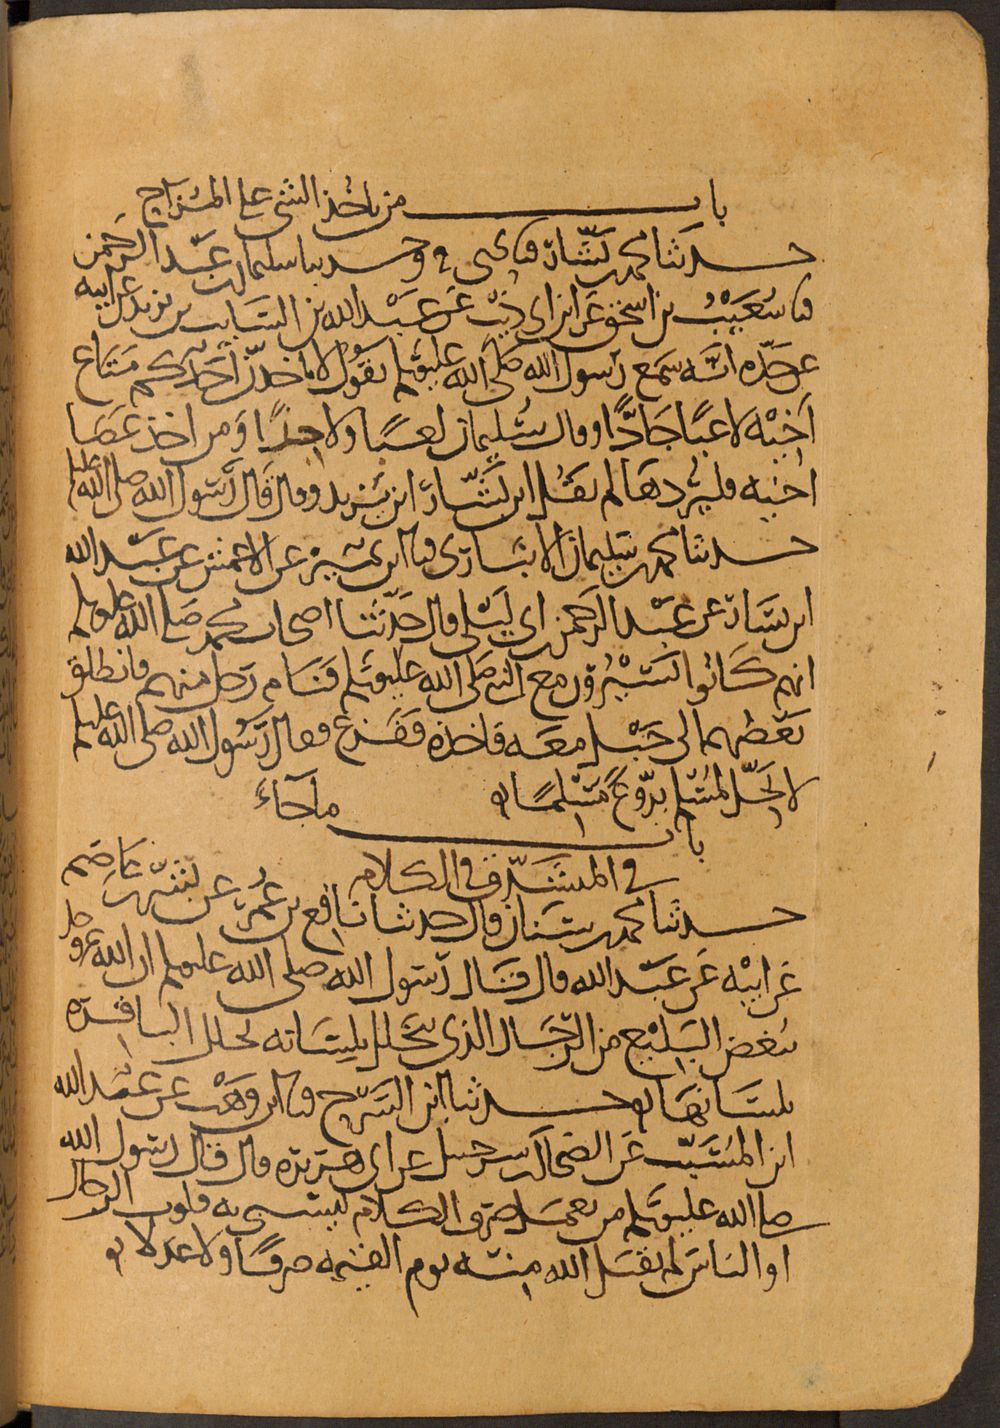 باب من ياخذ الشي على المزاح
حدثنا محمد بن بشار نا يحيى ح وحدثنا سليمان بن عبد الرحمن
نا شعيب بن اسحق عن ابن ابي ذئب عن عبد الله بن السايب بن يزيد عن ابيه
عن جده انه سمع رسول الله صلى الله عليه وسلم يقول لا ياخذن احدكم متاع
اخيه لاعبا جادا وقال سليمان لعبا ولا جدا ومن اخذ عصا
اخيه فليردها لم يقل ابن بشار ابن يزيد وقال قال رسول الله صلى الله عليه وسلم
حدثنا محمد بن سليمان الانباري نا ابن نمير عن الاعمش عن عبد الله
ابن يسار عن عبد الرحمن بن ابي ليلى قال حدثنا اصحاب محمد صلى الله عليه وسلم
انهم كانوا يسيرون مع النبي صلى الله عليه وسلم فنام رجل منهم فانطلق
بعضهم الى حبل معه فاخذه ففزع فقال رسول الله صلى الله عليه وسلم
لا يحل لمسلم يروع مسلما
باب ما جاء
في المتشدق في الكلام
حدثنا محمد بن سنان قال حدثنا نافع بن عمر عن بشر بن عاصم
عن ابيه عن عبد الله قال قال رسول الله صلى الله عليه وسلم ان الله عز وجل
يبغض البليغ من الرجال الذي يتخلل بلسانه تخلل الباقرة
بلسانها حدثنا ابن السرح نا ابن وهب عن عبد الله
ابن المسيب عن الضحاك بن شرحبيل عن ابي هريرة قال قال رسول الله
صلى الله عليه وسلم من تعلم صرف الكلام ليسبي به قلوب الرجال
او الناس لم يقبل الله منه يوم القيمة صرفا ولا عدلا